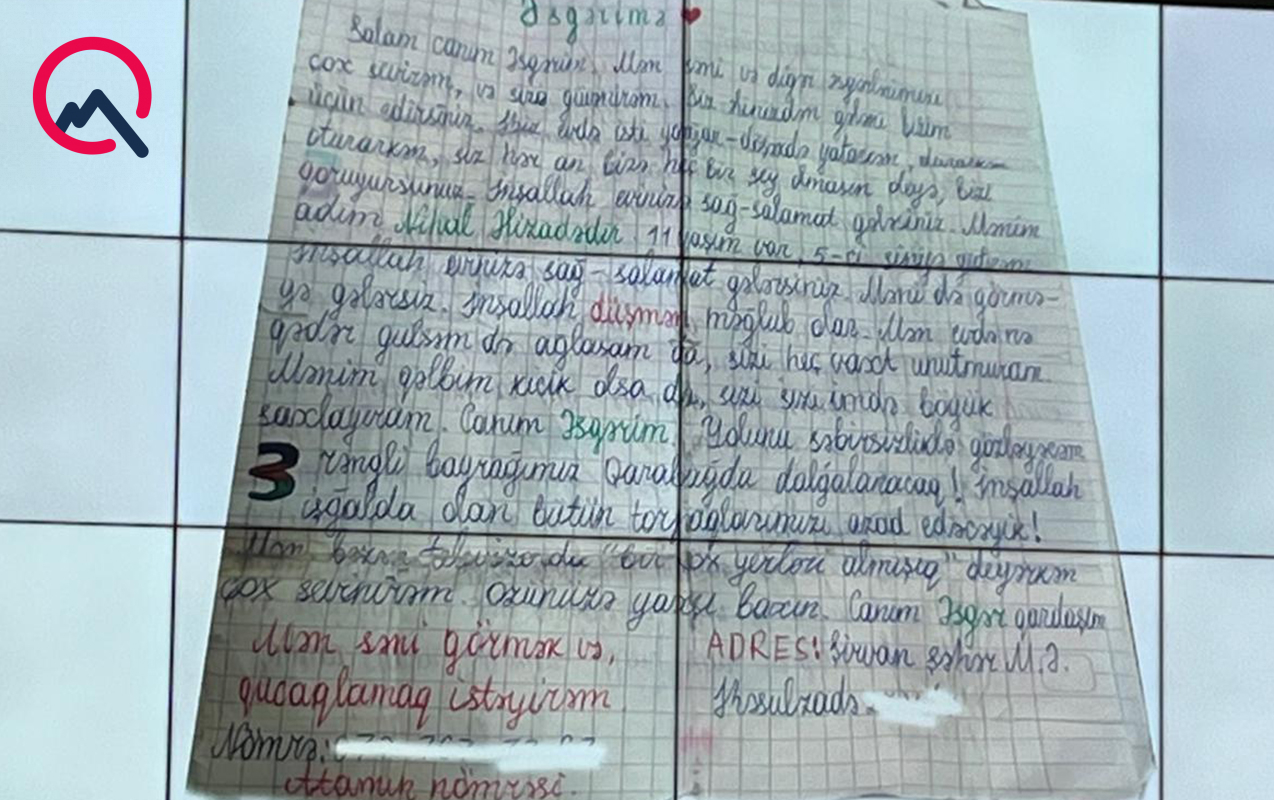 Əsgərimə
Salam canım Əsgərim. Mən səni və digər əsgərlərimizi
çox sevirəm, və sizə güvənirəm. Siz hünərdən gəlməni bizim
üçün edirsiniz. Biz evdə isti yorğan-döşəkdə yatarkən,
oturarkən, siz hər an bizə heç bir şey olmasın deyə, bizi
qoruyursunuz. İnşallah evinizə sağ-salamat gələrsiniz. Mənim
adım Nihal Əlizadədir. 11 yaşım var, 5-ci sinifə gedirəm
İnşallah evinizə sağ-salamat gələrsiniz. Məni də görmə-
yə gələrsiz. İnşallah düşmən məğlub olar. Mən evdə nə
qədər gülsəm də ağlasam da, sizi heç vaxt unutmuram.
Mənim qəlbim kiçik olsa da, sizi böyük
saxlayıram. Canım Əsgərim. Yolunu səbirsizliklə gözləyirəm
3 rəngli bayrağımız Qarabağda dalğalanacaq! İnşallah
işğalda olan bütün torpaqlarımızı azad edəcəyik!
Mən televizorda "bir çox yerləri almışıq" deyərkən
çox sevinirəm. Özünüzə yaxşı baxın. Canım Əsgər qardaşım
Mən səni görmək və,
qucaqlamaq istəyirəm
Nömrə:
Atamın nömrəsi.
ADRES: Şirvan şəhər M.Ə.
Rəsulzadə